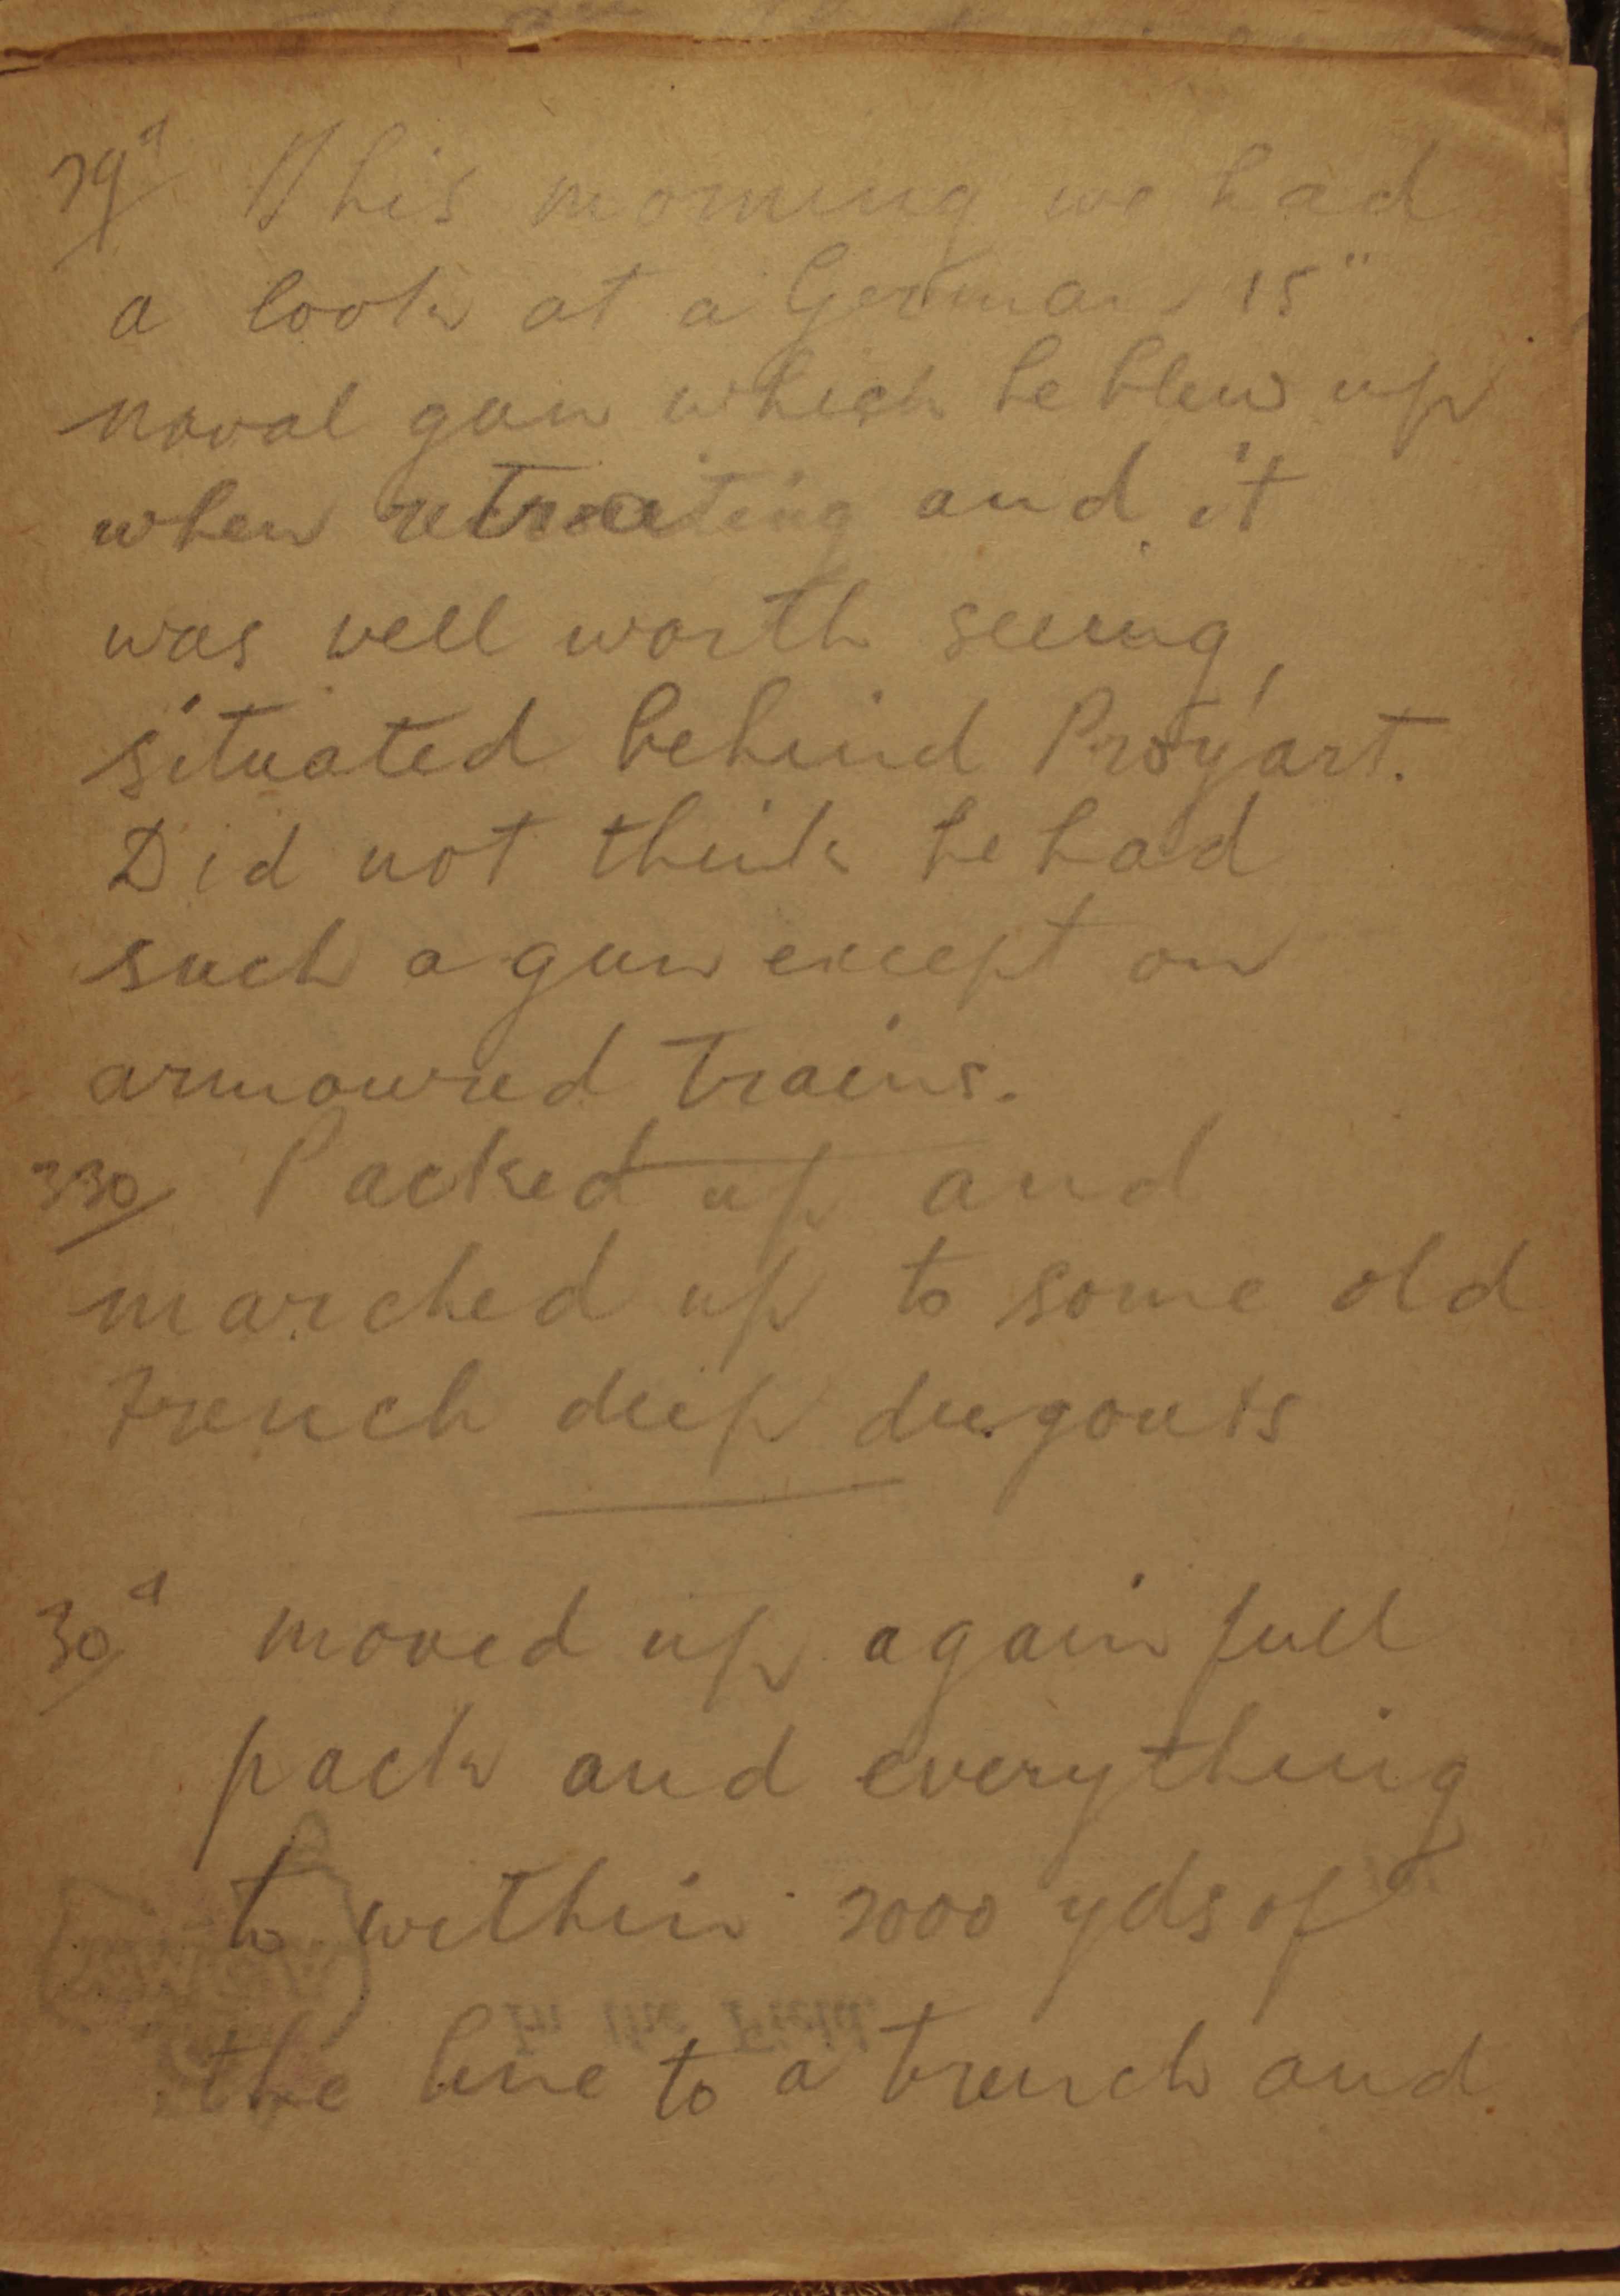 29a This morning we had
a look at a German 15"
naval gun which he blew up
when retreating and it
was well worth seeing,
situated behind Proyart.
Did not think he had
such a gun except on
armoured trains.
330 Packed up and
marched up to some old
French deep dugouts
30a moved up again full
pack and everything
to within 2000 yds of
In the Field.
the line to a trench and